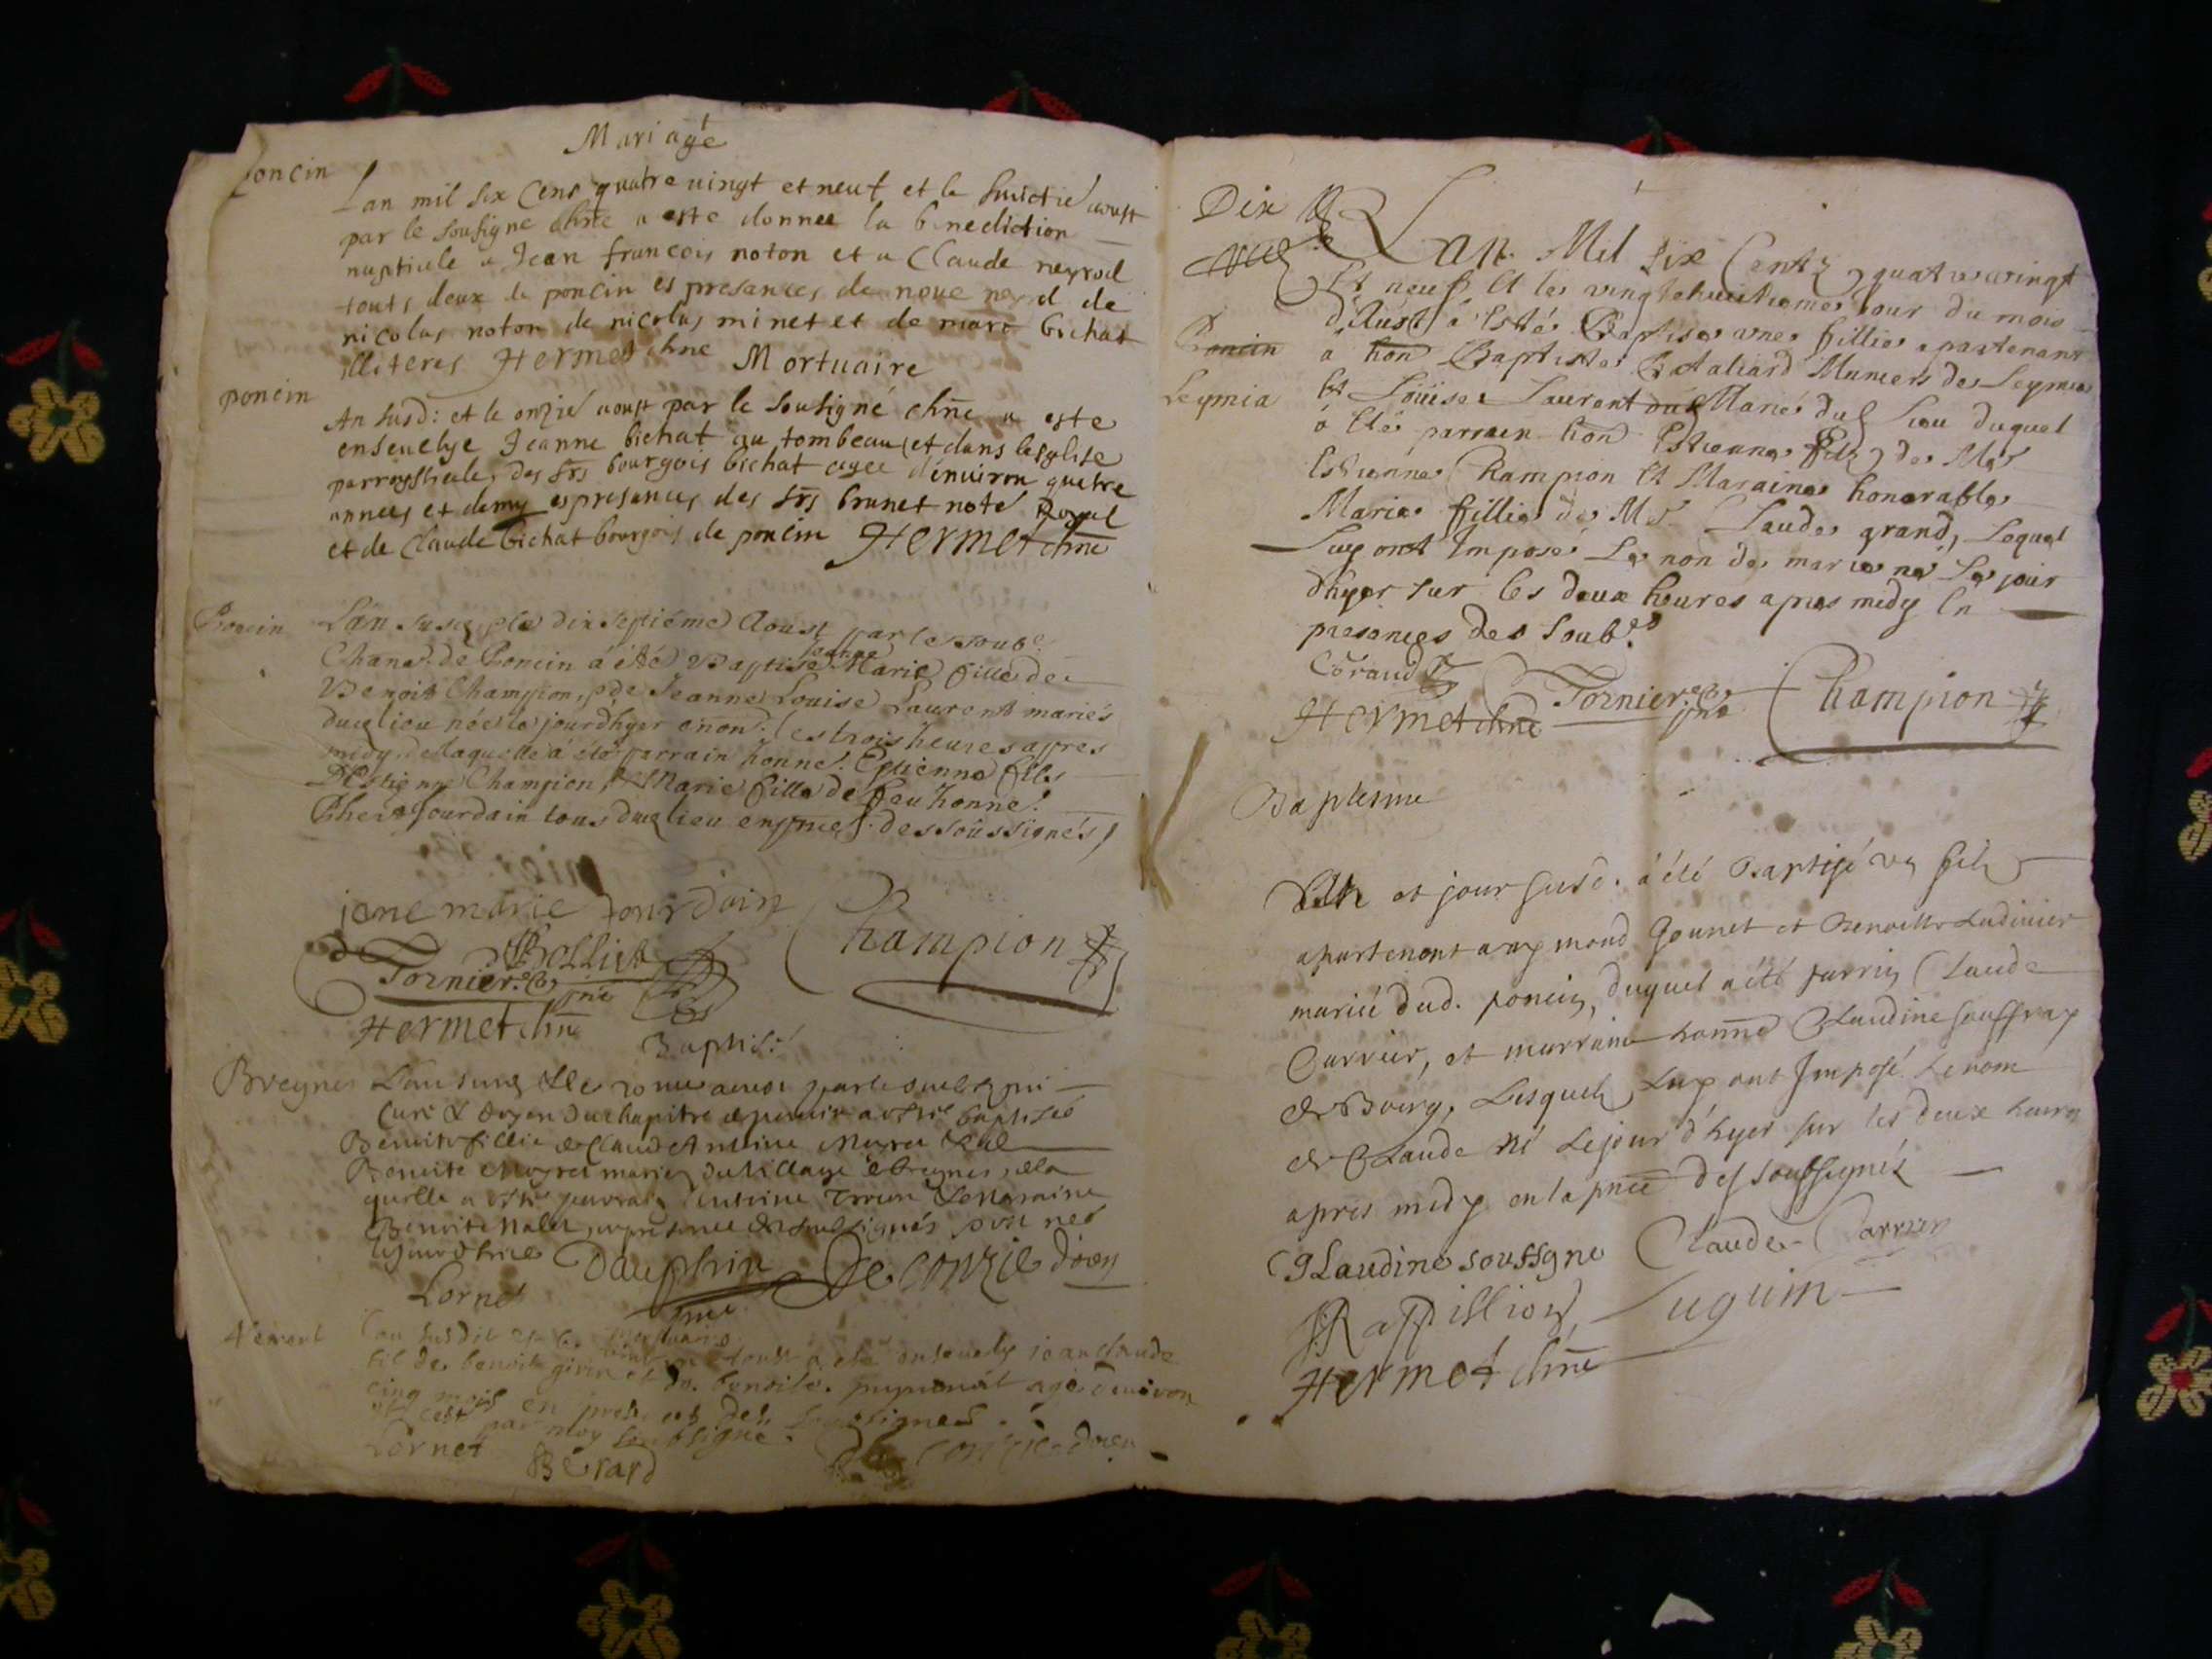 Mariage
poncin
Lan mil six Cens quatre vingt et neuf et le huictie aoust
par le sousigne chne a este donnee la benediction
nuptiale a Jean francois noton et a Claude neyrod
touts deux de poncin es presances de noue neyrod de
nicolas noton de nicolas minet et de marc bichat
illiteres Hermet chne
Mortuaire
poncin
An susd: et le onzie aoust par le sousigné chne a este
ensevelye Jeanne bichat au tombeau et dans lesglise
parroyssiale des srs bourgois bichat agee d'environ quatre
annees et demy es presances des srs brunet note Royal
et de Claude bichat bourgois de poncin Hermet chne
Poncin
L'an susd. & le dix septiéme Aoust par le soub.
Chane. de Poncin á été Baptisé Jeanne Marie fille de
Benoist Champion, & de Jeanne Louise Laurent mariés
dud lieu née le jourd'hyer environ les trois heures apres
midy, de laquelle á été parrain honne. Estienne fils
D'Estienne Champion, & Marie fille de feu honne.
Jourdain tous dud lieu en pnce. des soussignés,
jane marie Jourdain
Bollie
Champion
Tornier pne
Hermet chne
Baptis.
Breynes
Lan susd & le 20me aoust par le soubz
Curé & doyen du chapitre de poncin a esté baptisée
Benoite fillie de Claud Anthoine Moyret & de
Benoite Moyret mariez du village de breynes, de la
quelle a esté parrain Antoine & la Maraine
Benoite en presence des soubsignés
le jourdhier
Dauphin De Conzie doen
Lornet
pne
Lan susdit & le
aoust a esté ensevely jean claude
fil de benoit givin et de benoite agé denviron
cinq mois en presences des soubsignes
par moy soubsigne.
Lornet
Bérard
De Conzie doen
Dix
L'an Mil Six Centz quatre vingt
Et neuf Et le vingtehuictieme Jour du mois
d'Aust á Esté Baptisee une fillie apartenant
Poncin
á hon Baptiste Bataliard Muniers de Leymia
Leymia
Et Loüise Laurent Mariés dud Lieu duquel
á Eté parrain hon Estienne filz de Mr
Estienne Champion Et Maraine honorable
Marie fillie de Mr Claude grand, Lequel
Luy ont Imposé Le non de marie né Le jour
dhyer sur les deux heures apres midy En
presences des Soub.es
Coraud
Hermet chne
Tornier pne
Champion
Baptesme
L'an et jour susd. á été Baptisé un filz
apartenant a Gounet et Benoitte Ludinier
mariés dud. poncin, duquel a été parrin Claude
Carrier, et marraine honne Claudine Souffray
de Bourg, Lesquels Luy ont Imposé Le nom
de Claude Né Le jour d'hyer sur les deux heures
apres midy en la pnce des soussignéz
Claudine soussgne
Claude Carrier
Rappillion
Luguin
Hermet chne